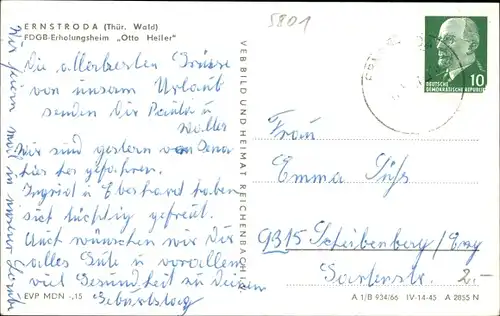 5801
ERNSTRODA (Thür. Wald)
FDGB-Erholungsheim „Otto Heller"
Die allerbesten Grüsse
von unserm Urlaub
senden Dir Paula u
Walter
Wir sind gestern von Jena
hier her gefahren.
Ingrid u Eberhard haben
sich tüchtig gefreut.
Auch wünschen wir Dir
alles Gute u vorallem
viel Gesundheit zu Deinem
Geburtstag
Wir feiern mal in unserer
VEB BILD UND HEIMAT REICHENBACH i. V.
DEUTSCHE
DEMOKRATISCHE REPUBLIK
10
Frau
Emma Süß
9315 Scheibenberg/Erzg
Gartenstr.
2.-
EVP MDN -,15
A 1/B 934/66 IV-14-45 A 2855 N